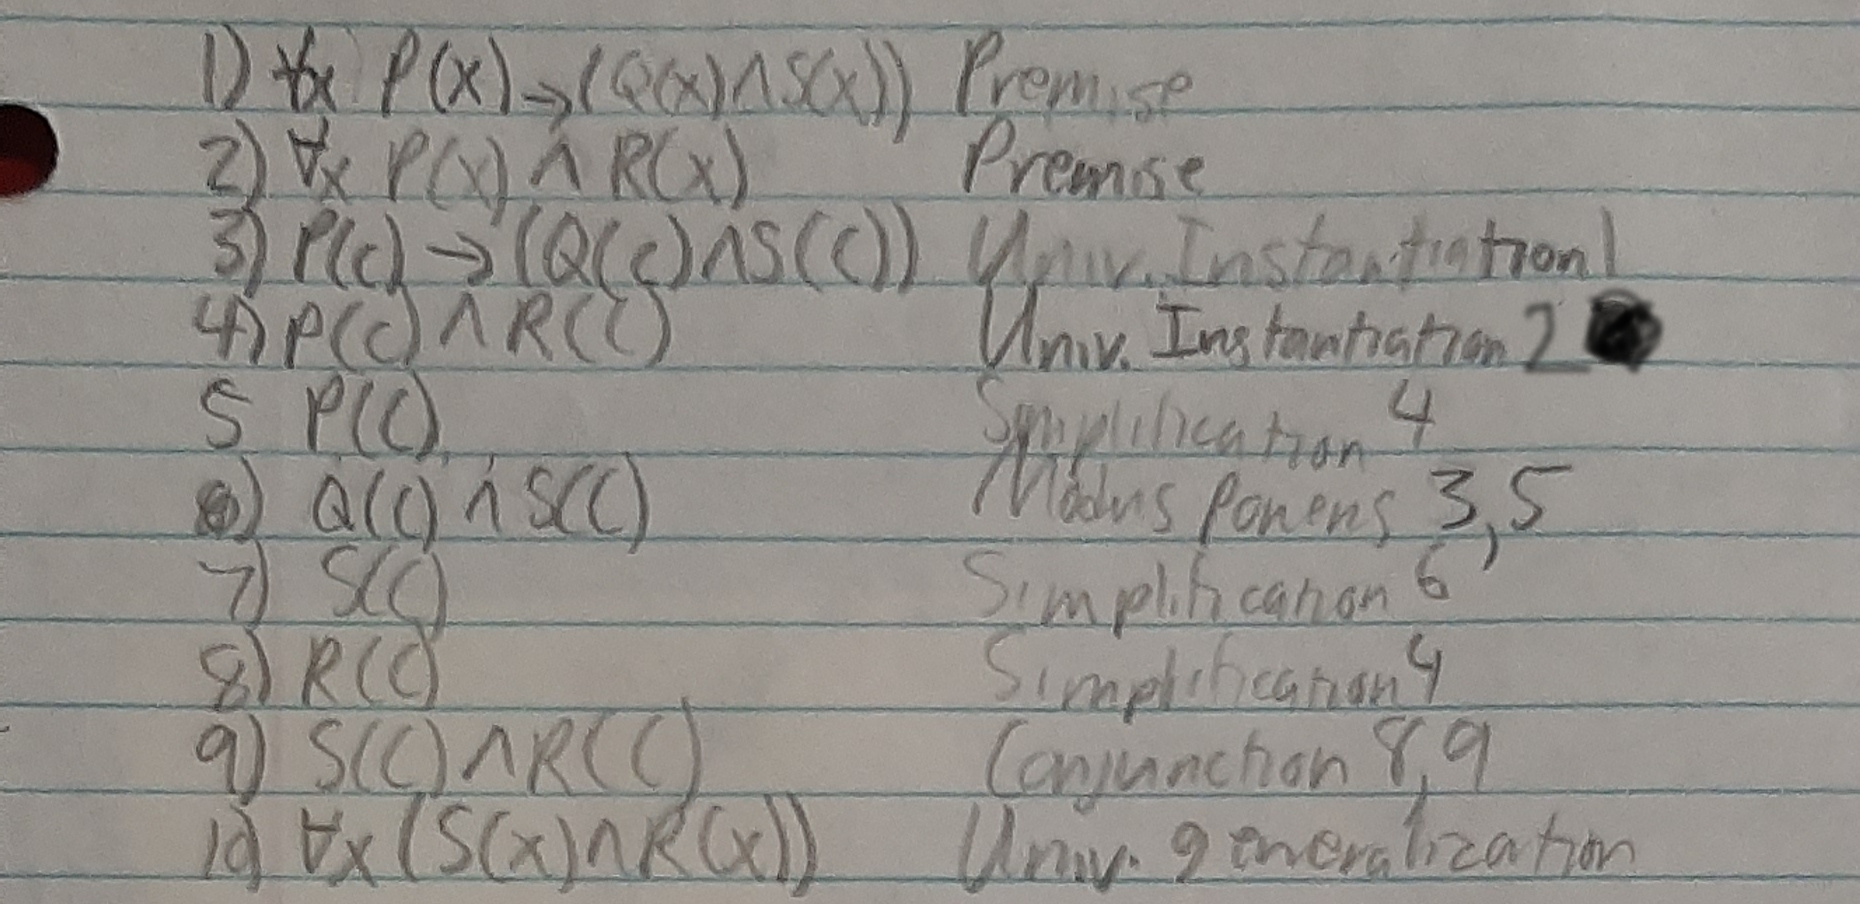 1) ∀x P(x)→(Q(x)∧S(x)) Premise
2) ∀x P(x) ∧ R(x) Premise
3) P(c) → (Q(c)∧S(c)) Univ. Instantiation 1
4) P(c) ∧ R(c) Univ. Instantiation 2
5 P(c) Simplification 4
6) Q(c) ∧ S(c) Modus Ponens 3,5
7) S(c) Simplification 6
8) R(c) Simplification 4
9) S(c) ∧ R(c) Conjunction 8,9
10) ∀x (S(x)∧R(x)) Univ. generalization